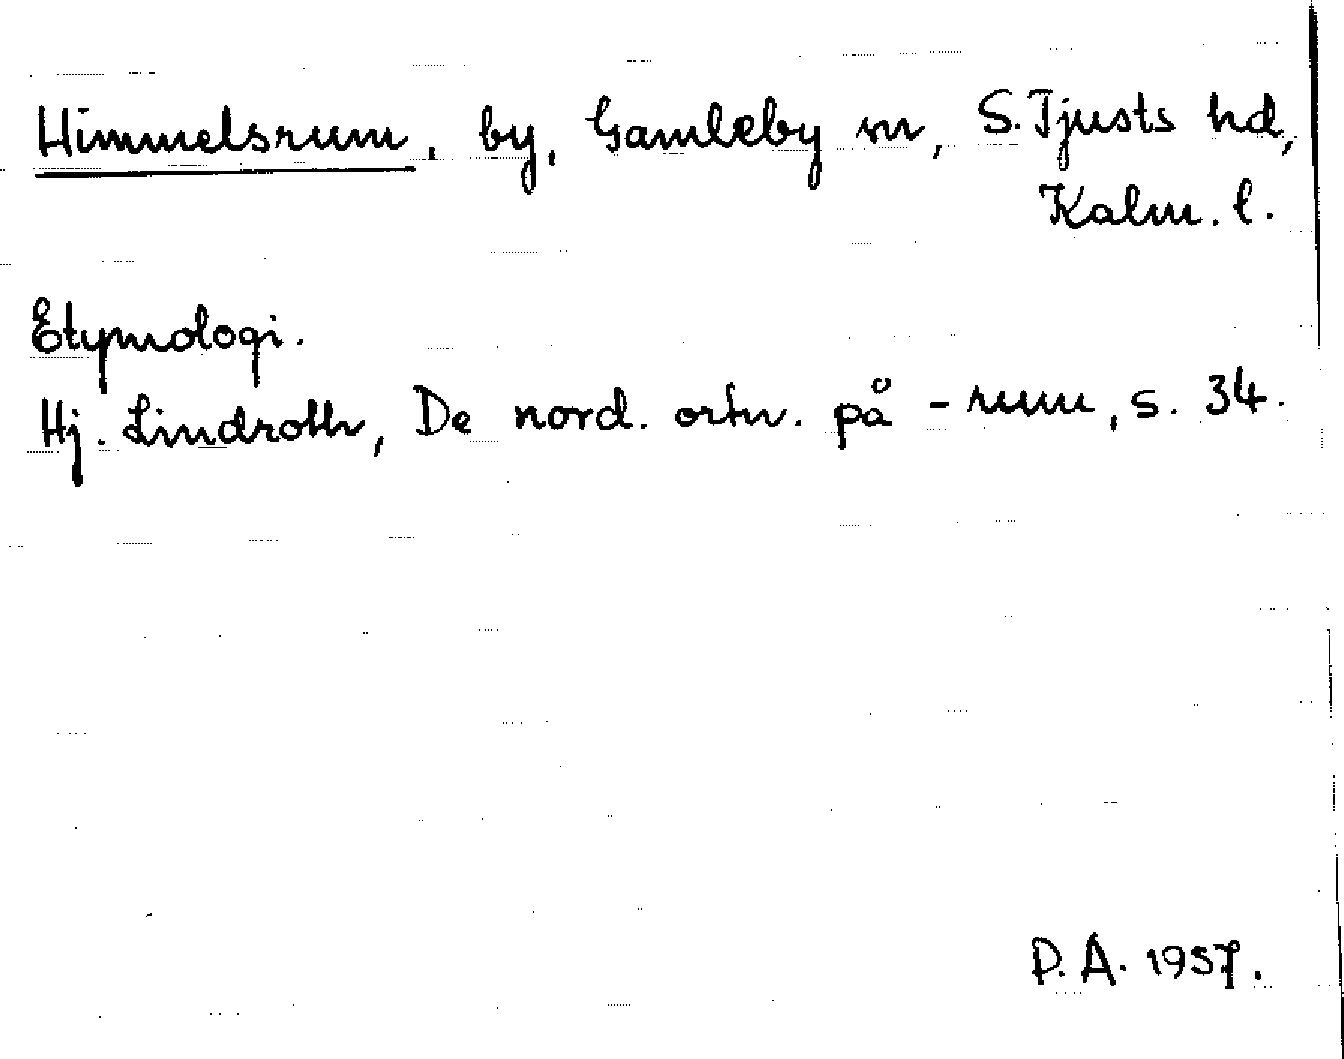 Himmelsrum, by, Gamleby sn, S. Tjusts hd,
Kalm. l.
Etymologi.
Hj. Lindroth, De nord. ortn. på -rum, s. 34.
P. A. 1957.